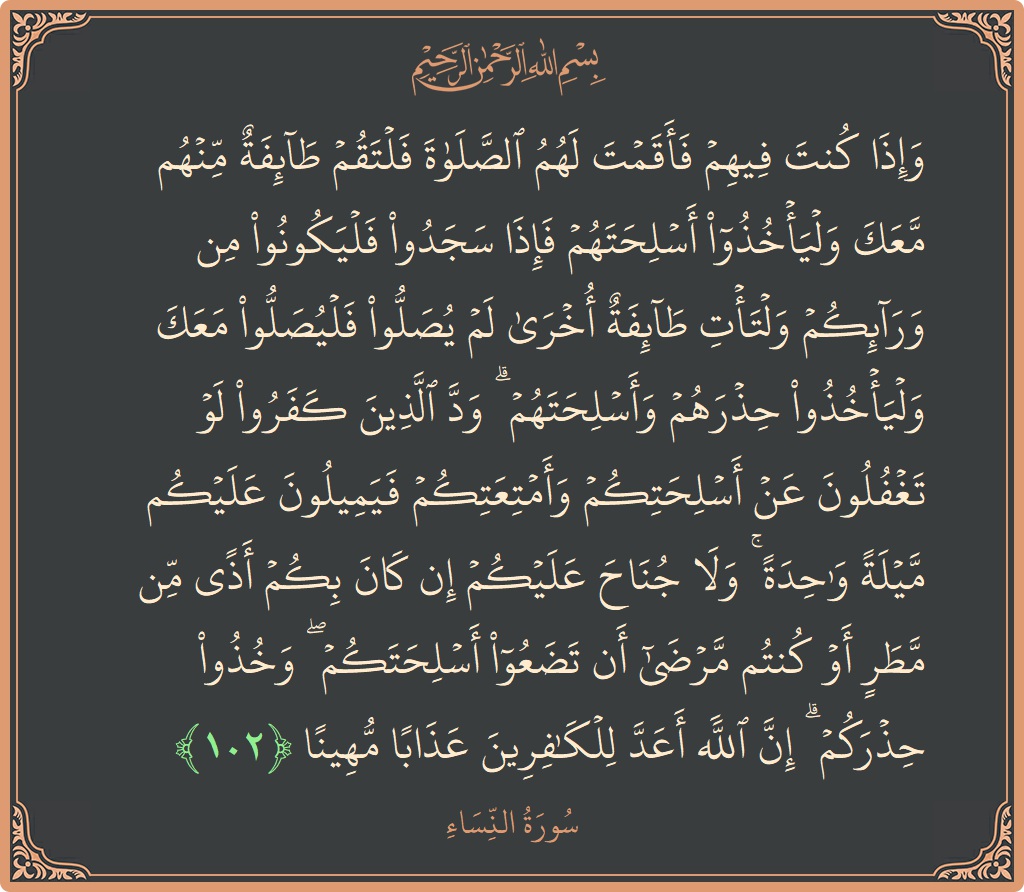 بِسْمِ اللَّهِ الرَّحْمَٰنِ الرَّحِيمِ
وَإِذَا كُنتَ فِيهِمْ فَأَقَمْتَ لَهُمُ ٱلصَّلَوٰةَ فَلْتَقُمْ طَآئِفَةٌ مِّنْهُم
مَّعَكَ وَلْيَأْخُذُوٓا۟ أَسْلِحَتَهُمْ فَإِذَا سَجَدُوا۟ فَلْيَكُونُوا۟ مِن
وَرَآئِكُمْ وَلْتَأْتِ طَآئِفَةٌ أُخْرَىٰ لَمْ يُصَلُّوا۟ فَلْيُصَلُّوا۟ مَعَكَ
وَلْيَأْخُذُوا۟ حِذْرَهُمْ وَأَسْلِحَتَهُمْ ۗ وَدَّ ٱلَّذِينَ كَفَرُوا۟ لَوْ
تَغْفُلُونَ عَنْ أَسْلِحَتِكُمْ وَأَمْتِعَتِكُمْ فَيَمِيلُونَ عَلَيْكُم
مَّيْلَةً وَٰحِدَةً ۚ وَلَا جُنَاحَ عَلَيْكُمْ إِن كَانَ بِكُمْ أَذًى مِّن
مَّطَرٍ أَوْ كُنتُم مَّرْضَىٰٓ أَن تَضَعُوٓا۟ أَسْلِحَتَكُمْ ۖ وَخُذُوا۟
حِذْرَكُمْ ۗ إِنَّ ٱللَّهَ أَعَدَّ لِلْكَٰفِرِينَ عَذَابًا مُّهِينًا ﴿١٠٢﴾
سُورَةُ النِّسَاءِ